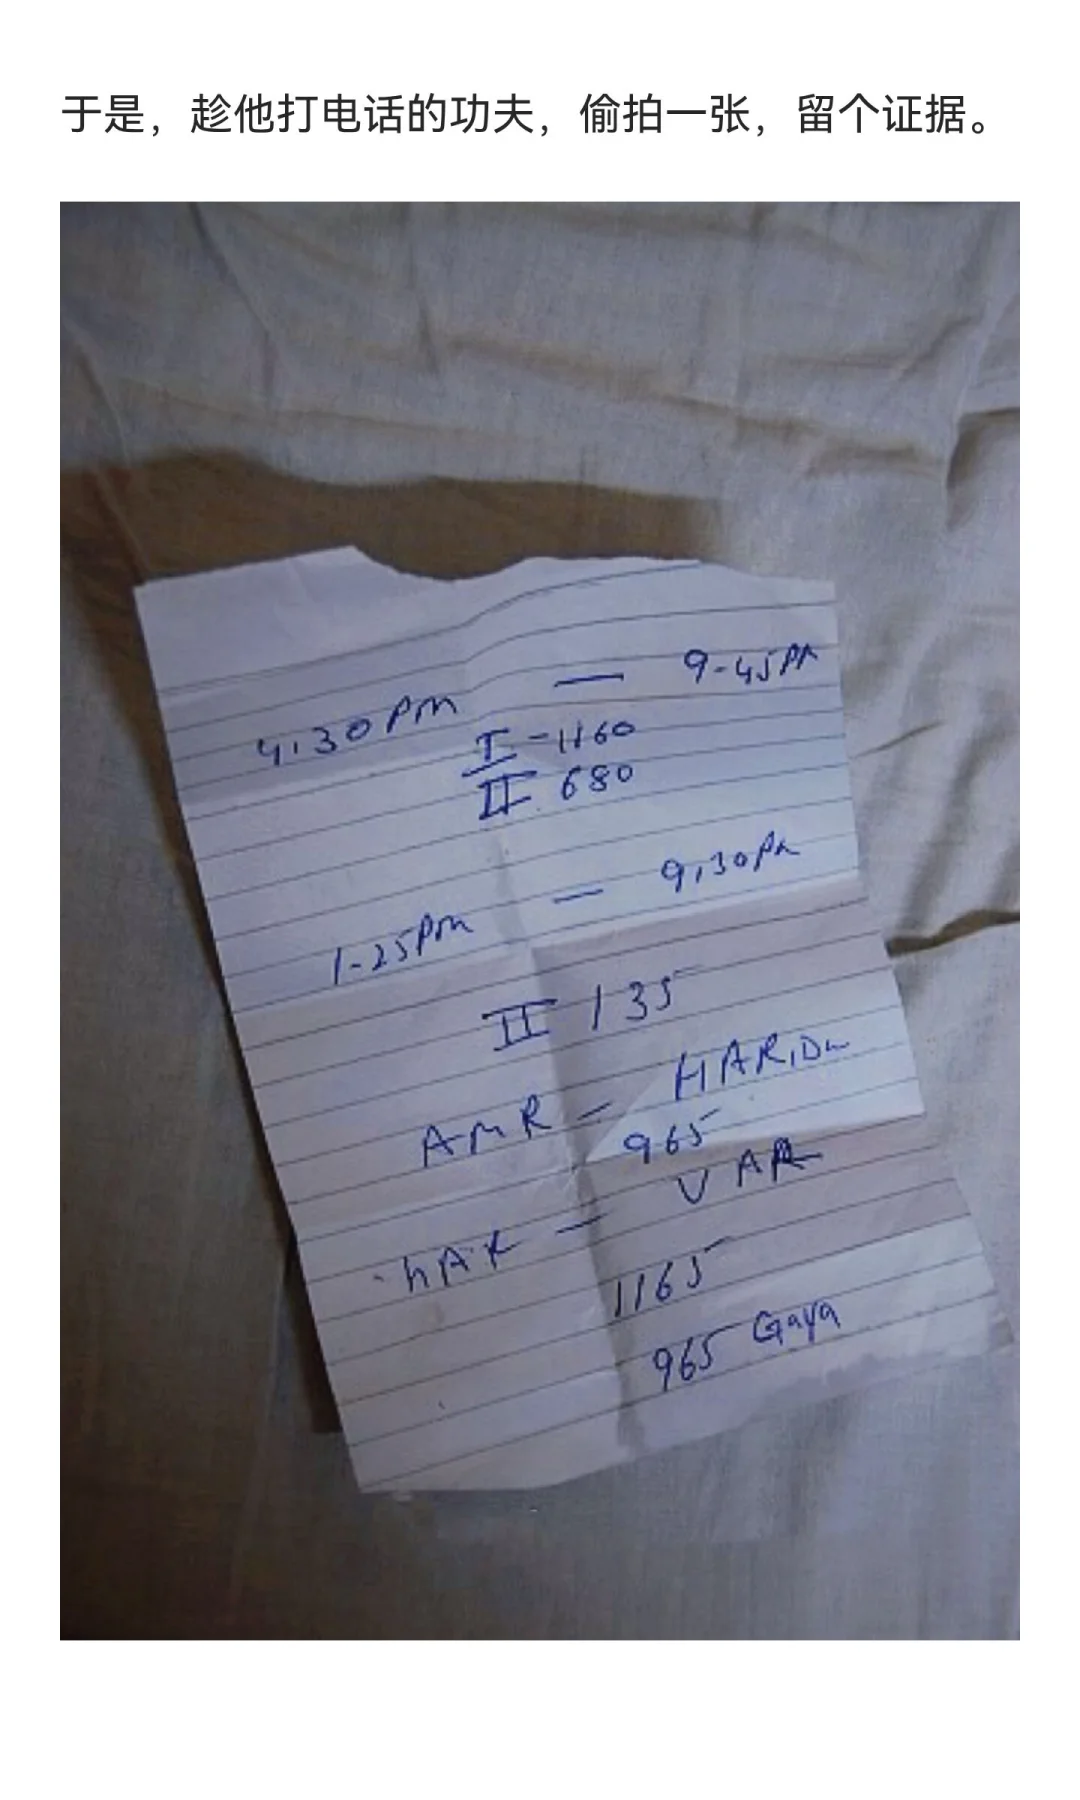 于是，趁他打电话的功夫，偷拍一张，留个证据。
4.30 PM — 9-45 PM
I - 1160
II 680
1-25 PM — 9.30 PM
II 135
AMR — HARIDW
965
HAR — VAR
1165
965 Gaya